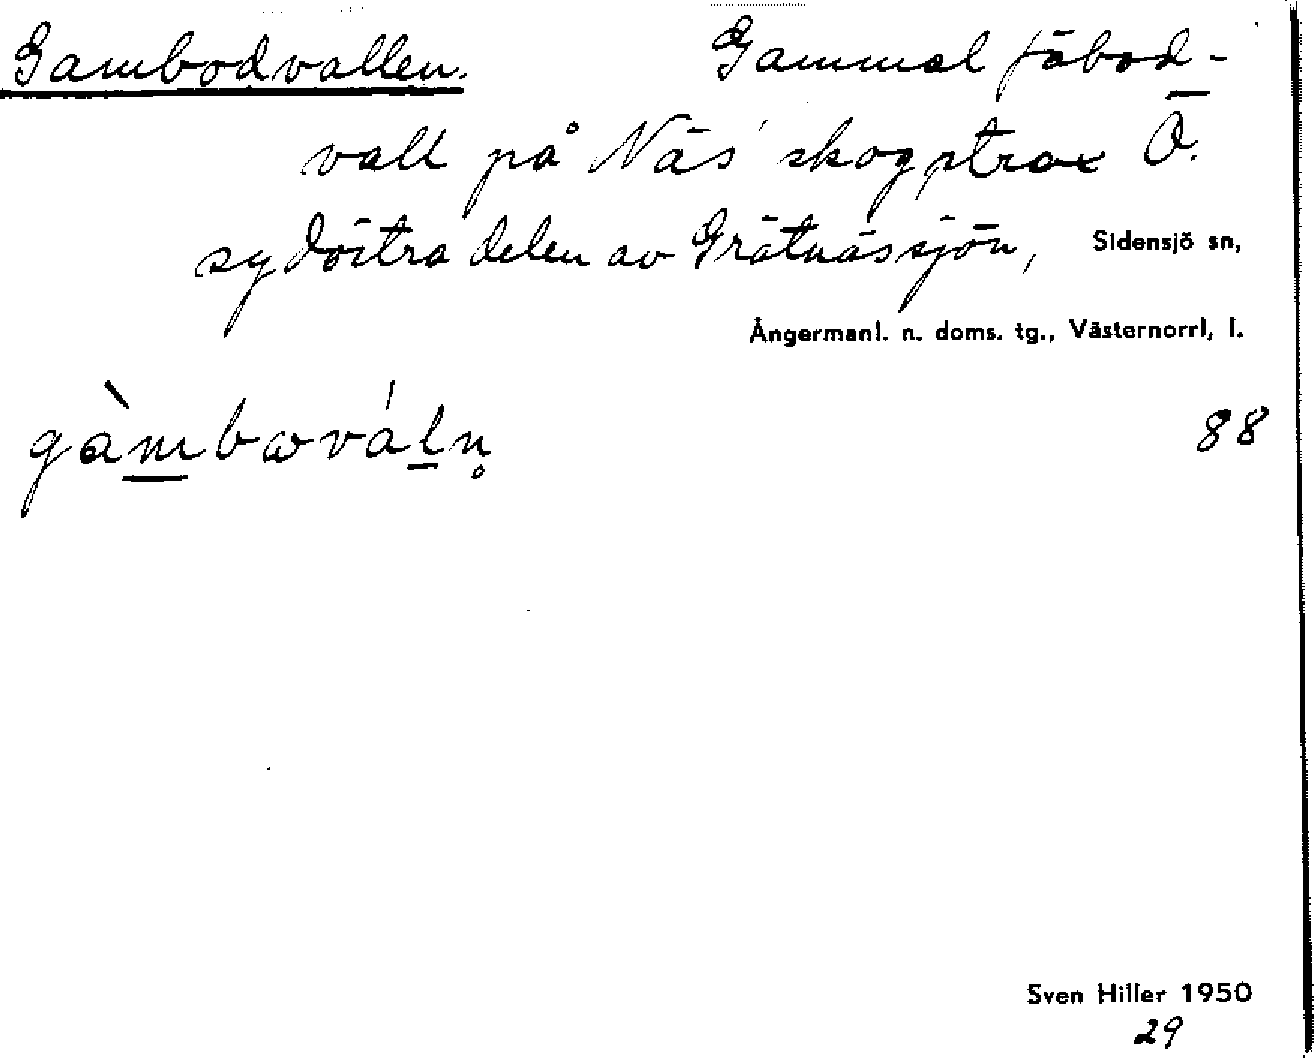 Gambodvallen. Gammal fäbod-
vall på Näs' skog, strax Ö.
sydöstra delen av Grätnässjön, Sidensjö sn,
Ångermanl. n. doms. tg., Västernorrl, l.
gàmbωváln̥ 88
Sven Hiller 1950
29